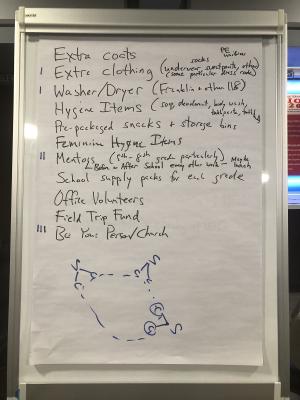 Extra coats
socks PE uniform
I Extra clothing (underwear, sweatpants, other)
(some particular dress code)
I Washer/Dryer (Franklin + other 118)
Hygiene Items (soap, deodorant, body wash,
toothpaste, toothb
Pre-packaged snacks + storage bins
Feminine Hygiene Items
II Mentors (5th-8th grade particularly)
Before or After School every other week - Maybe lunch
School supply packs for each grade
Office Volunteers
Field Trip Fund
III Be Your Person/Church
S S
S